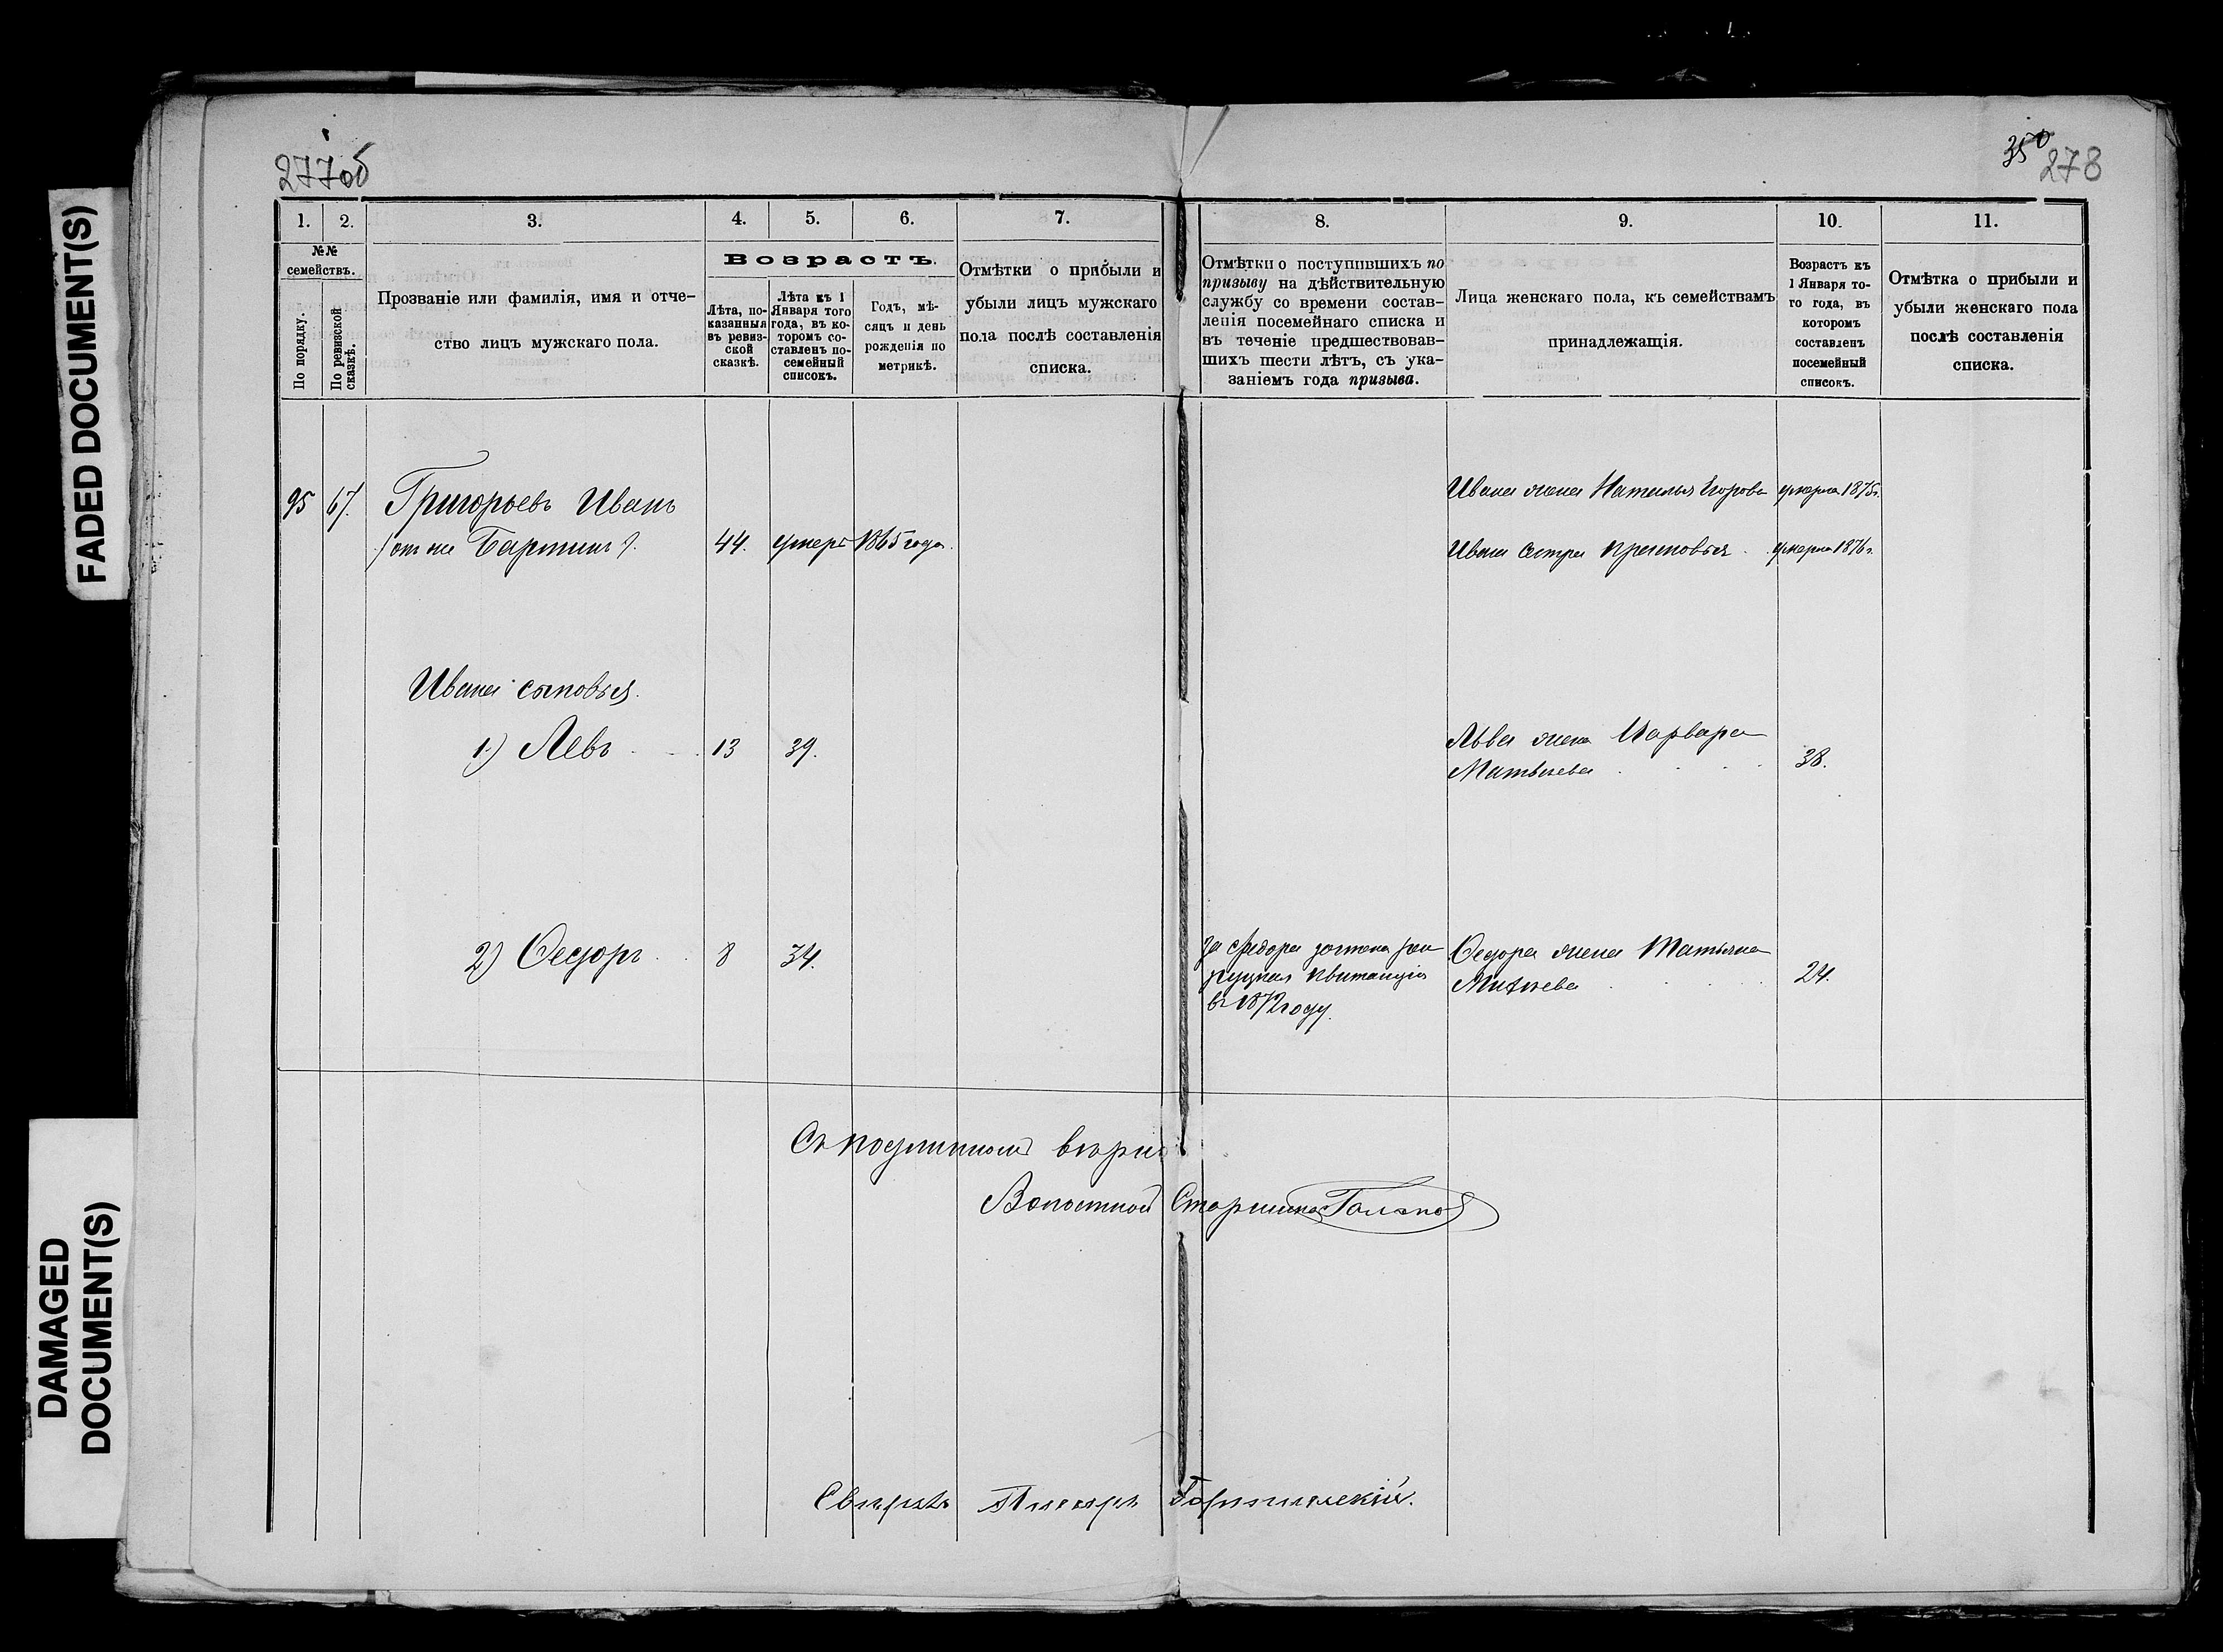 FADED DOCUMENT(S)
DAMAGED
DOCUMENT(S)
277об
350
278
1.
2.
3.
4.
5.
6.
7.
8.
9.
10.
11.
№№
семействъ.
По порядку.
По ревизской
сказкѣ.
Прозваніе или фамилія, имя и отче-
ство лицъ мужскаго пола.
Возрастъ.
Лѣта, по-
казанныя
въ ревиз-
ской
сказкѣ.
Лѣта къ 1
Января того
года, въ ко-
торомъ со-
ставленъ по-
семейный
списокъ.
Годъ, мѣ-
сяцъ и день
рожденія по
метрикѣ.
Отмѣтки о прибыли и
убыли лицъ мужскаго
пола послѣ составленія
списка.
Отмѣтки о поступившихъ по
призыву на дѣйствительную
службу со времени состав-
ленія посемейнаго списка и
въ теченіе предшествовав-
шихъ шести лѣтъ, съ ука-
заніемъ года призыва.
Лица женскаго пола, къ семействамъ
принадлежащія.
Возрастъ къ
1 Января то-
го года, въ
которомъ
составленъ
посемейный
списокъ.
Отмѣтка о прибыли и
убыли женскаго пола
послѣ составленія
списка.
95 67. Григорьевъ Иванъ
44. умеръ 1865 года.
Ивана жена Наталья Егорова умерла 1875г.
Ивана сестра Прасковья умерла 1876г.
Ивана сыновья.
1) Левъ 13 39.
Льва жена Варвара
Матвѣева 38.
2) Ѳедоръ 8 34.
За Федора зачтена рек
рутская квитанція
въ 1872 году.
Ѳедора жена Татьяна
24.
Съ подлиннымъ вѣрно
Волостной Старшина
Свѣрялъ Писарь